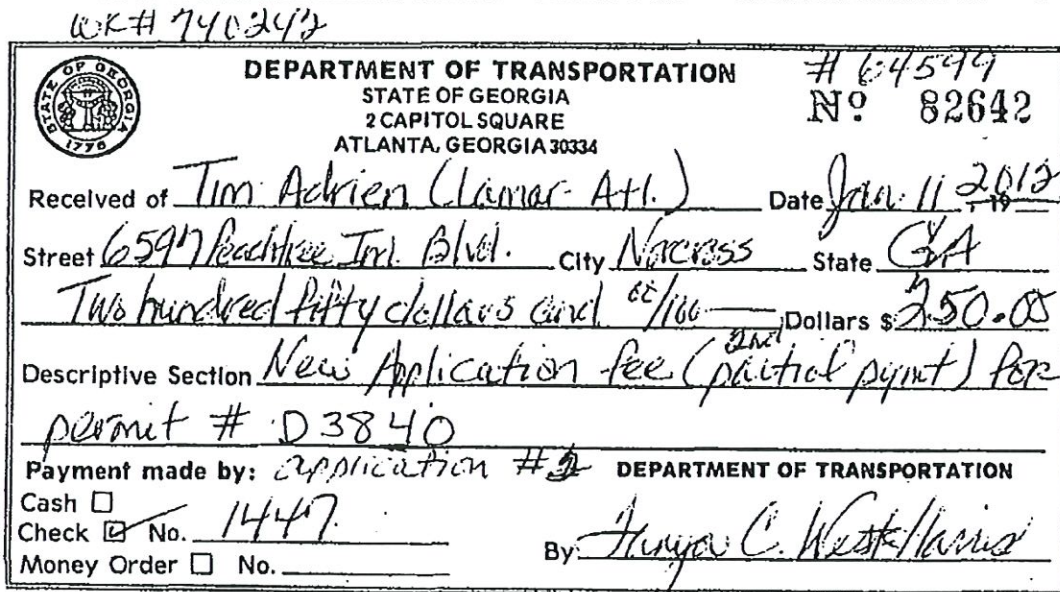 WK# 740242
STATE OF GEORGIA
1776
DEPARTMENT OF TRANSPORTATION
STATE OF GEORGIA
2 CAPITOL SQUARE
ATLANTA, GEORGIA 30334
# 64599
Nº 82642
Received of Tim Adrien (Lamar-Atl.) Date Jan 11 2012, 19
Street 6597 Peachtree Ind. Blvd. City Norcross State GA
Two hundred fifty dollars and 00/100 Dollars $ 250.00
2nd
Descriptive Section New Application fee (partial pymt) for
permit # D3840
Payment made by: application #2 DEPARTMENT OF TRANSPORTATION
Cash ☐
Check ☑ No. 1447
Money Order ☐ No.
By C. West-Harris